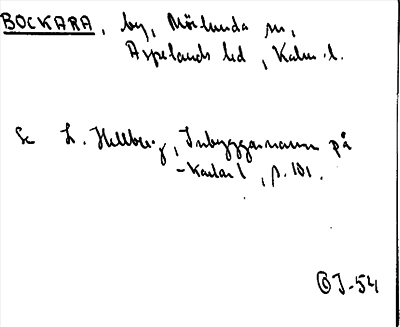 BOCKARA, by, Mörlunda sn,
Aspelands hd, Kalm. l.
Se L. Hellberg, Inbyggarnamn på
-karlar, s. 101.
OJ-54